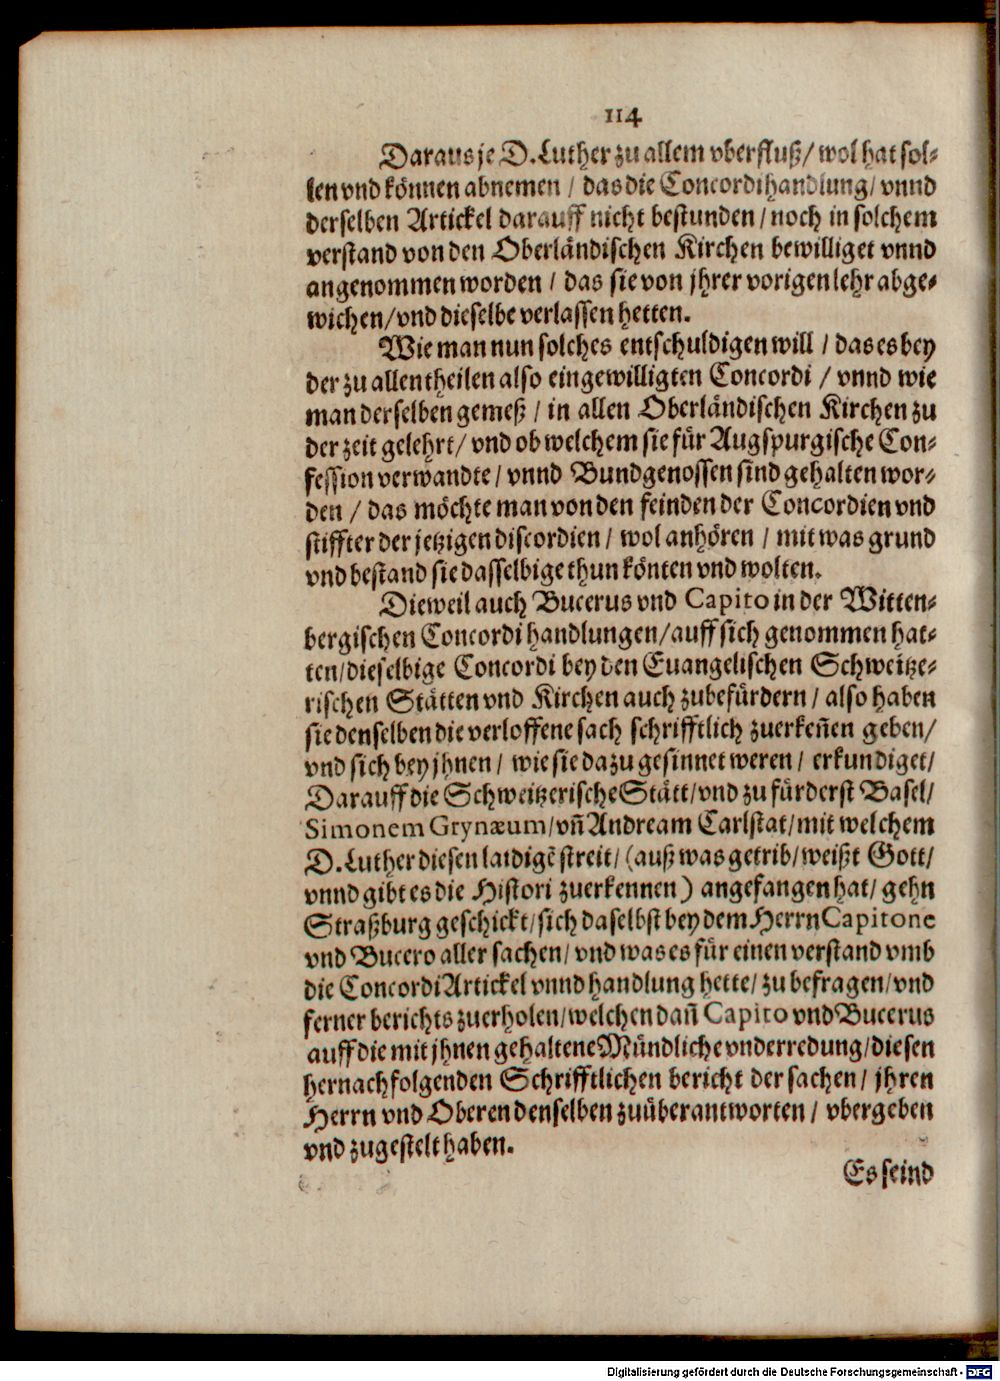 114
Daraus je D. Luther zu allem vberfluß / wol hat sol-
len vnd können abnemen / das die Concordihandlung / vnnd
derselben Artickel darauff nicht bestunden / noch in solchem
verstand von den Oberländischen Kirchen bewilliget vnnd
angenommen worden / das sie von jhrer vorigen lehr abge-
wichen / vnd dieselbe verlassen hetten.
Wie man nun solches entschuldigen will / das es bey
der zu allen theilen also eingewilligten Concordi / vnnd wie
man derselben gemeß / in allen Oberländischen Kirchen zu
der zeit gelehrt / vnd ob welchem sie für Augspurgische Con-
fession verwandte / vnnd Bundgenossen sind gehalten wor-
den / das möchte man von den feinden der Concordien vnd
stiffter der jetzigen discordien / wol anhören / mit was grund
vnd bestand sie dasselbige thun könten vnd wolten.
Dieweil auch Bucerus vnd Capito in der Witten-
bergischen Concordi handlungen / auff sich genommen hat-
ten / dieselbige Concordi bey den Euangelischen Schweitze-
rischen Stätten vnd Kirchen auch zubefürdern / also haben
sie denselben die verloffene sach schrifftlich zuerkeñen geben /
vnd sich bey jhnen / wie sie dazu gesinnet weren / erkundiget /
Darauff die Schweitzerische Stätt / vnd zu fürderst Basel /
Simonem Grynæum / vñ Andream Carlstat / mit welchem
D. Luther diesen laidigē streit / (auß was getrib / weißt Gott /
vnnd gibt es die Histori zuerkennen) angefangen hat / gehn
Straßburg geschickt / sich daselbst bey dem Herrn Capitone
vnd Bucero aller sachen / vnd was es für einen verstand vmb
die Concordi Artickel vnnd handlung hette / zu befragen / vnd
ferner berichts zuerholen / welchen dañ Capito vnd Bucerus
auff die mit jhnen gehaltene Mündliche vnderredung / diesen
hernachfolgenden Schrifftlichen bericht der sachen / jhren
Herrn vnd Oberen denselben zuüberantworten / vbergeben
vnd zugestelt haben.
Es seind
Digitalisierung gefördert durch die Deutsche Forschungsgemeinschaft - DFG